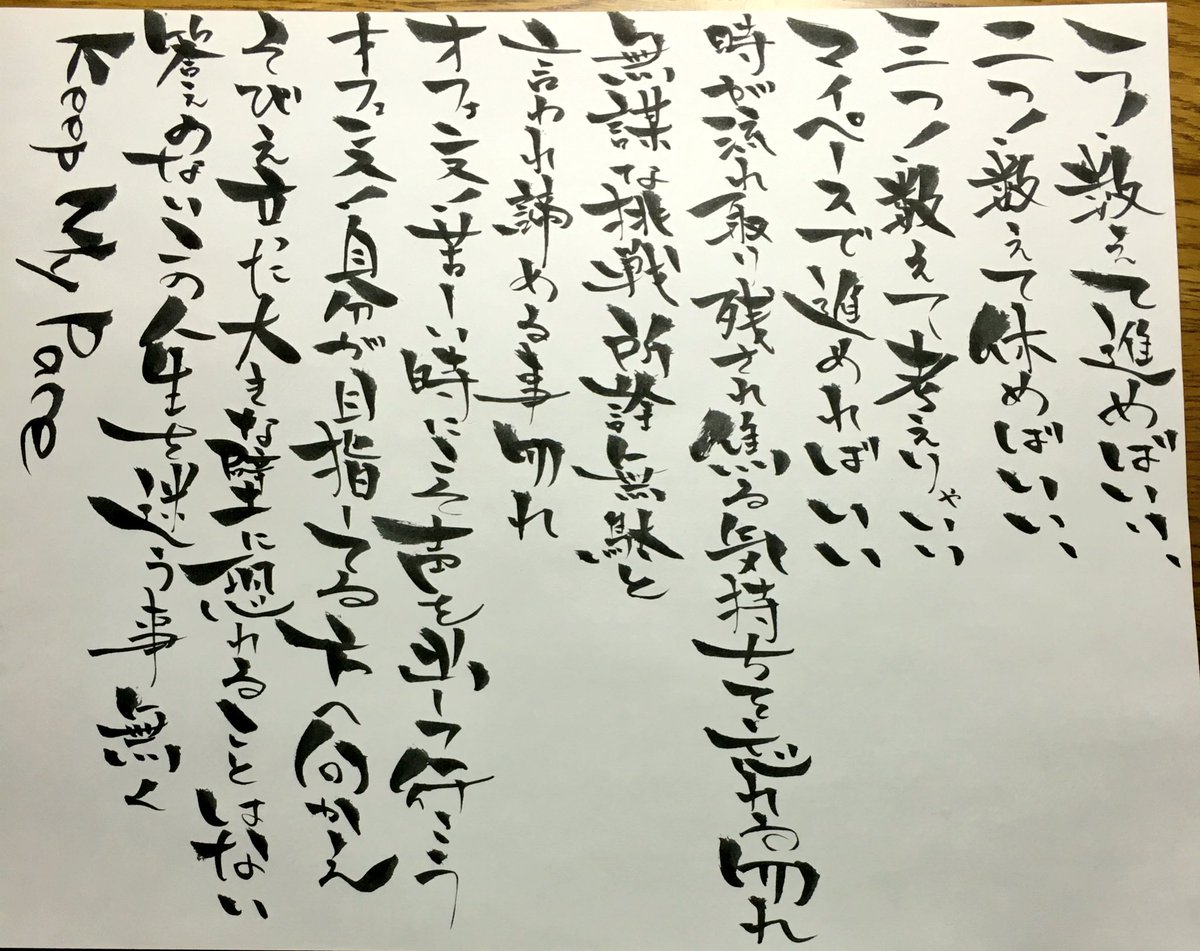 一つ数えて進めばいい
二つ数えて休めばいい
三つ数えて考えりゃいい
マイペースで進めればいい
時が流れ取り残され焦る気持ちで忘れる勿れ
無謀な挑戦所詮無駄と
言われ諦める事勿れ
オフェンス苦しい時にこそ声を出して行こう
オフェンス自分が目指してる方へ向かえ
そびえ立った大きな壁に恐れることはない
答えのないこの人生を迷う事無く
Keep My Pace